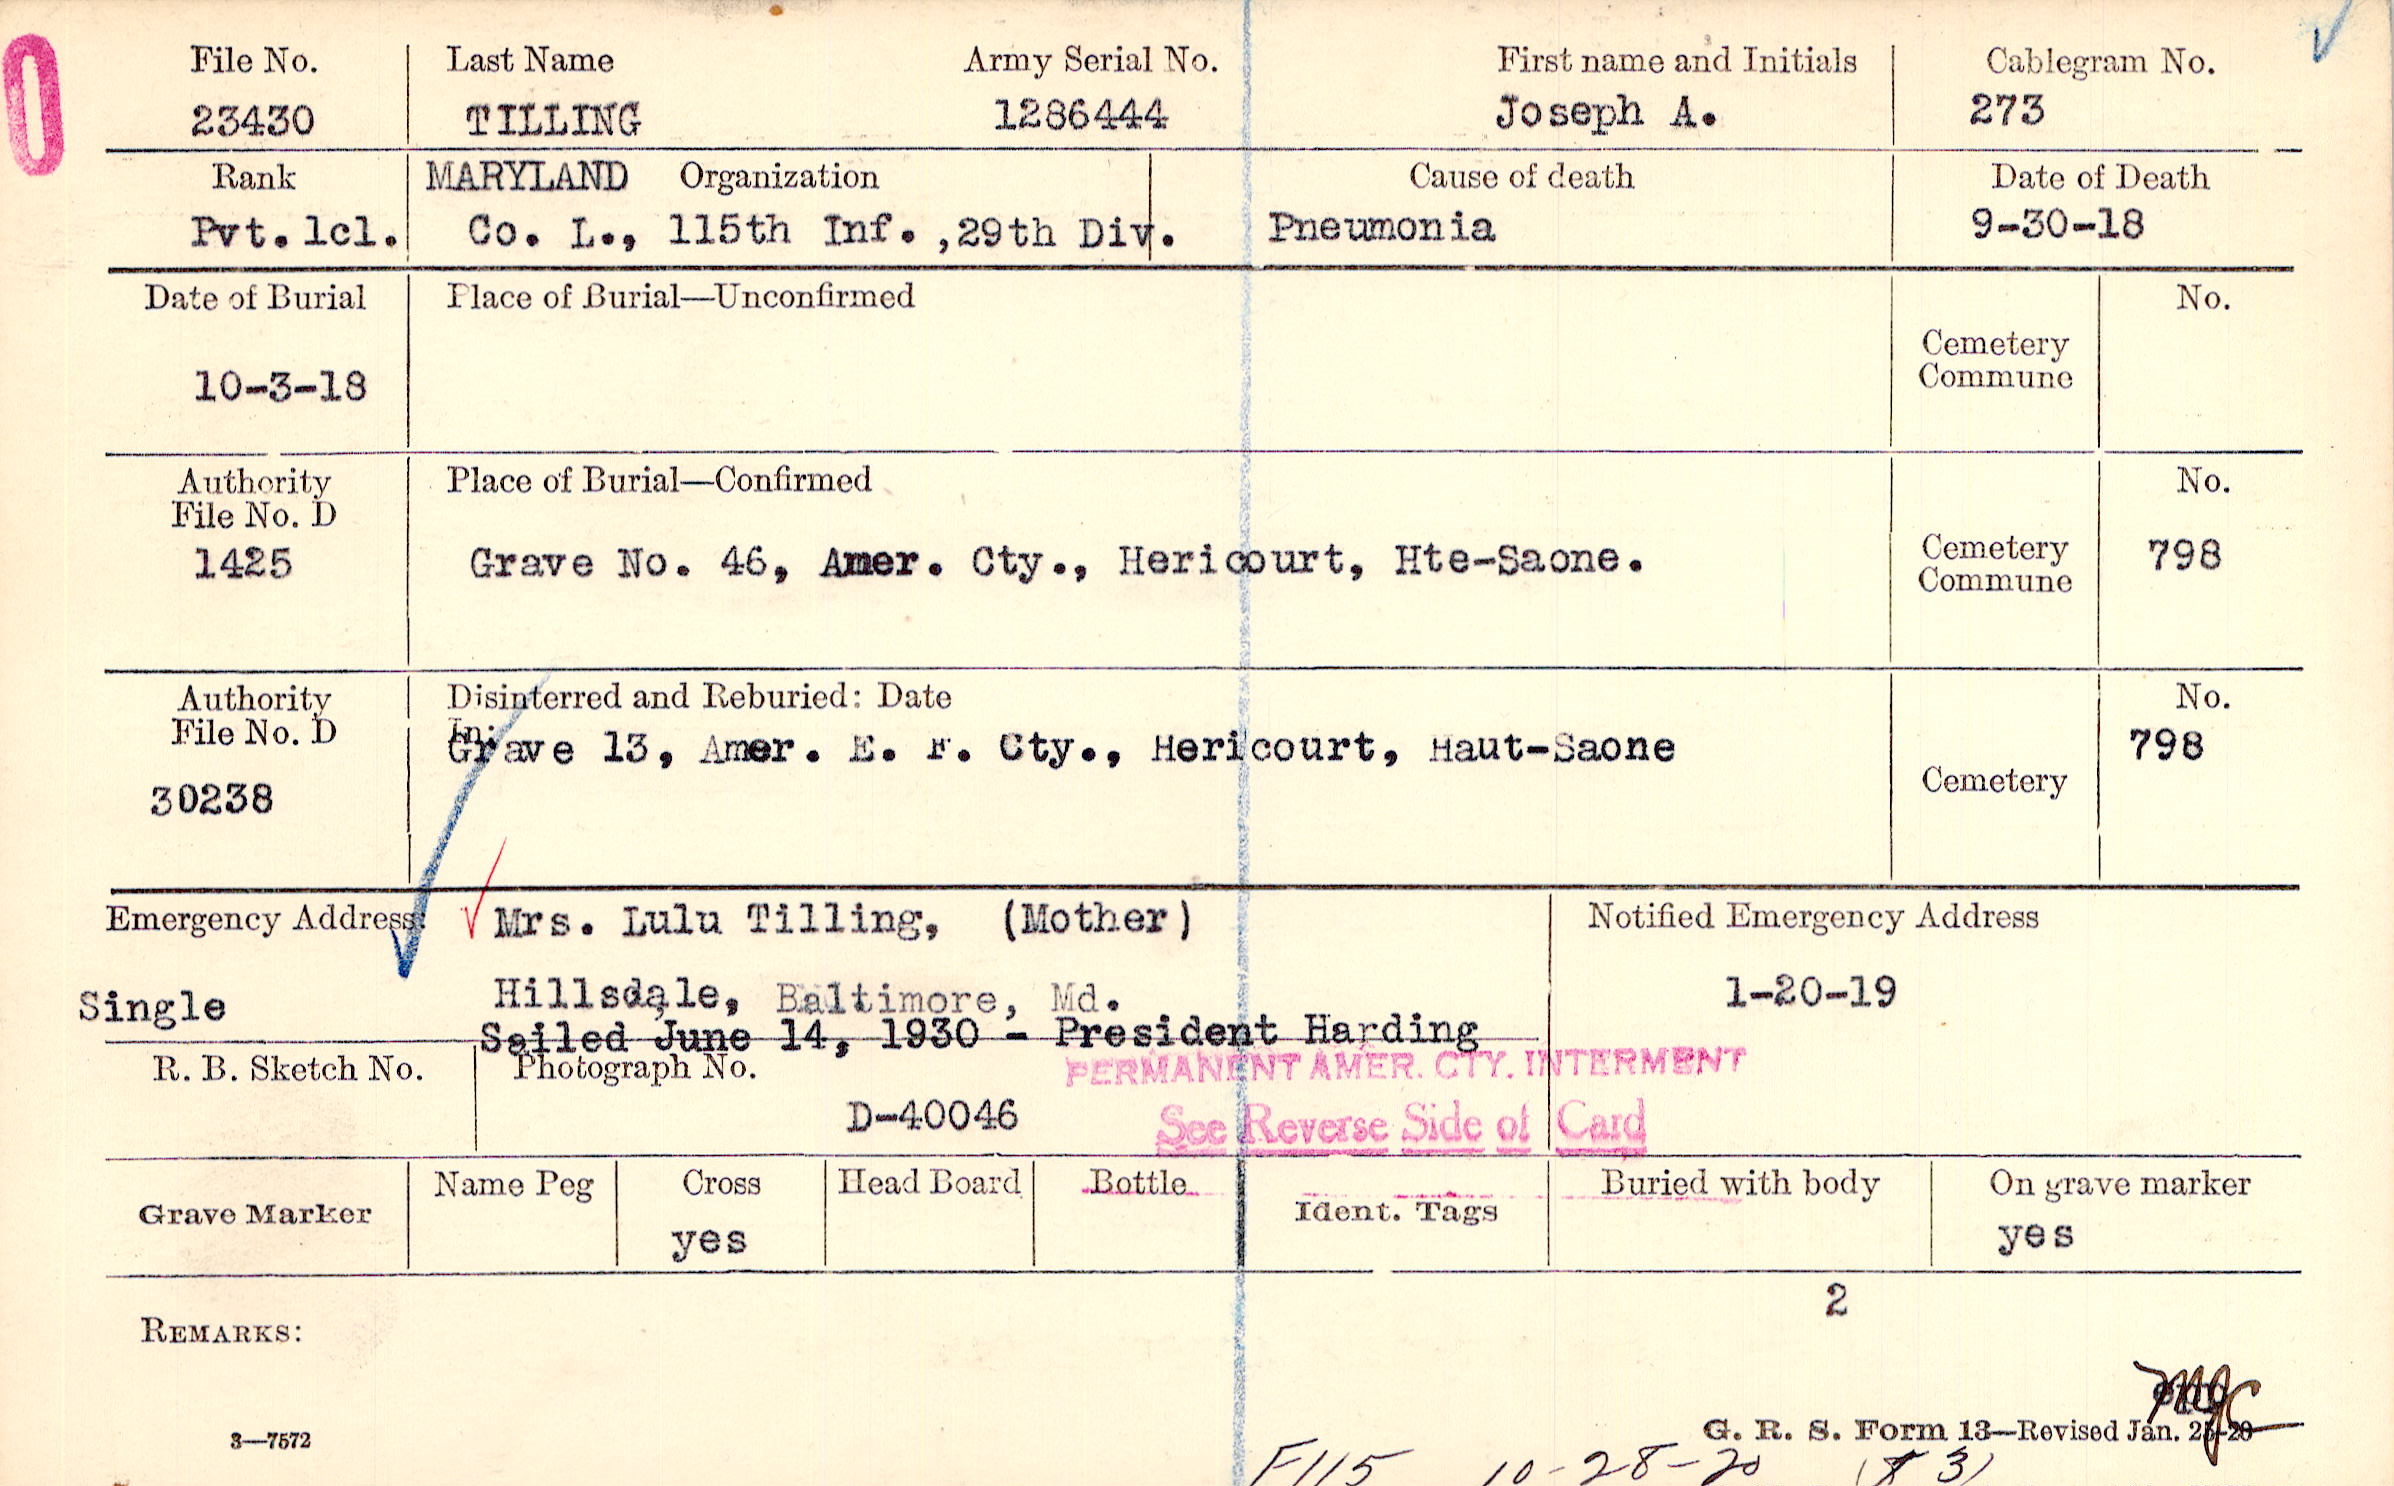 File No. Last Name Army Serial No. First name and Initials Cablegram No.
23430 TILLING 1286444 Joseph A. 273
Rank MARYLAND Organization Cause of death Date of Death
Pvt. 1cl. Co. L., 115th Inf.,29th Div. Pneumonia 9-30-18
Date of Burial Place of Burial—Unconfirmed No.
Cemetery
Commune
10-3-18
Authority Place of Burial—Confirmed No.
File No. D
1425 Grave No. 46, Amer. Cty., Hericourt, Hte-Saone. Cemetery 798
Commune
Authority Disinterred and Reburied: Date No.
File No. D In:
Grave 13, Amer. E. F. Cty., Hericourt, Haut-Saone 798
30238 Cemetery
Emergency Address: Mrs. Lulu Tilling, (Mother) Notified Emergency Address
Single Hillsdale, Baltimore, Md. 1-20-19
Sailed June 14, 1930 - President Harding
R. B. Sketch No. Photograph No. PERMANENT AMER. CTY. INTERMENT
D-40046 See Reverse Side of Card
Name Peg Cross Head Board Bottle Buried with body On grave marker
Grave Marker Ident. Tags
yes yes
2
REMARKS:
3—7572 G. R. S. Form 13—Revised Jan.
F115 10-28-20